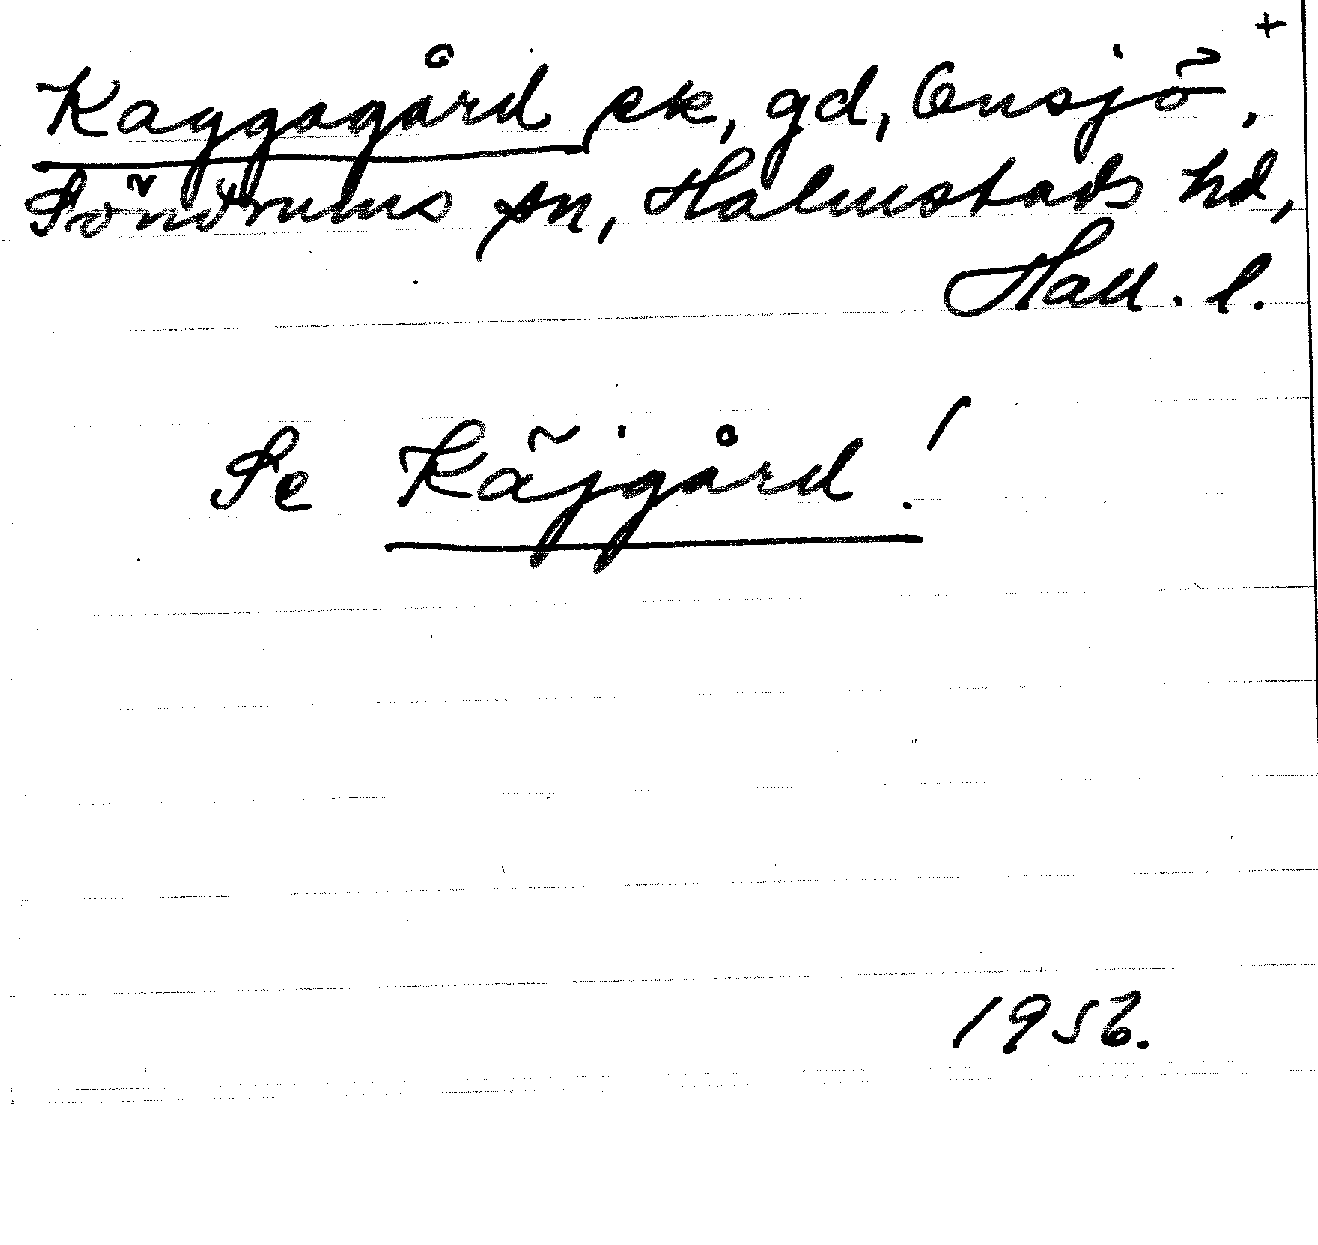 +
Kaggagård ek, gd, Onsjö,
Söndrums sn, Halmstads hd,
Hall. l.
Se Käjgård!
1956.